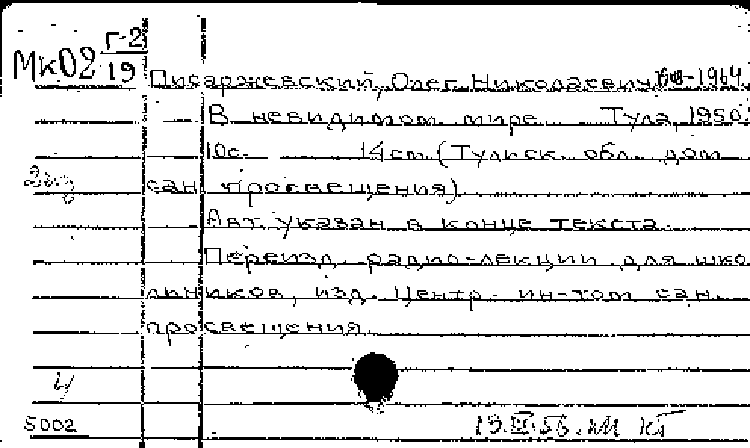 Мк02 Г-2/19
Писаржевский, Олег Николаевич, -1964.
В невидимом мире. Тула, 1950.
10с. 14см. (Тульск. обл. дом
2 экз
сан. просвещения)
Авт. указан в конце текста.
Переизд. радио-лекции для шко
льников, изд. Центр. ин-том сан.
просвещения.
5002